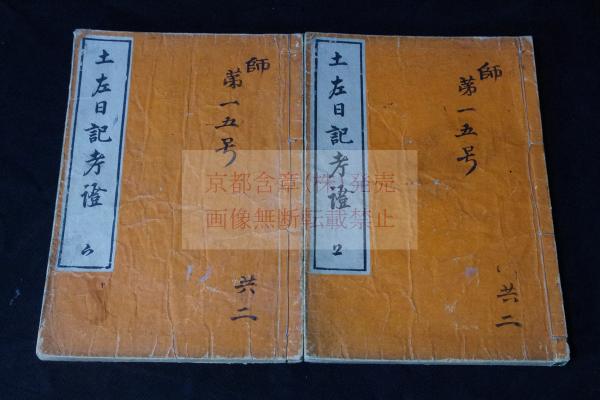 土左日記考證
師
第一五号
共二
土左日記考證
師
第一五号
共二
京都含章(株)発売
画像無断転載禁止